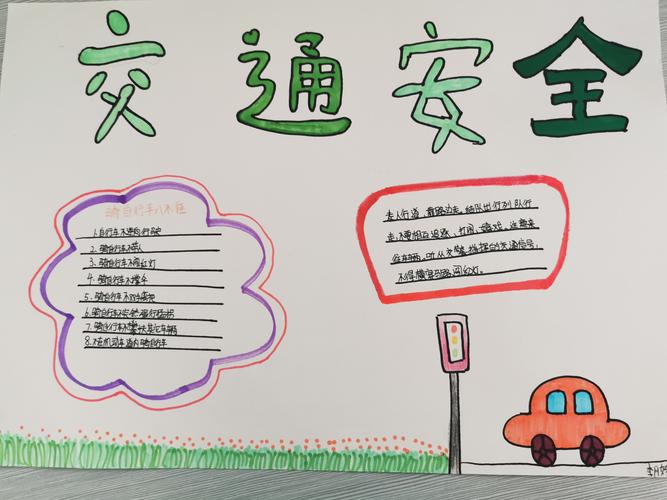 交通安全
骑自行车八不
1.自行车不
2.骑自行车不带人
3.骑自行车不闯红灯
4.骑自行车不撑伞
5.骑自行车不双手
6.骑自行车不突然强行猛拐
7.骑自行车不攀扶其它车辆
8.不在机动车道内骑自行车
走人行道,靠路边走,结队出行列队行
走,不要相互追逐、打闹、嬉戏,注意来
往车辆。听从交警指挥和交通信号,
不得横穿马路闯红灯。